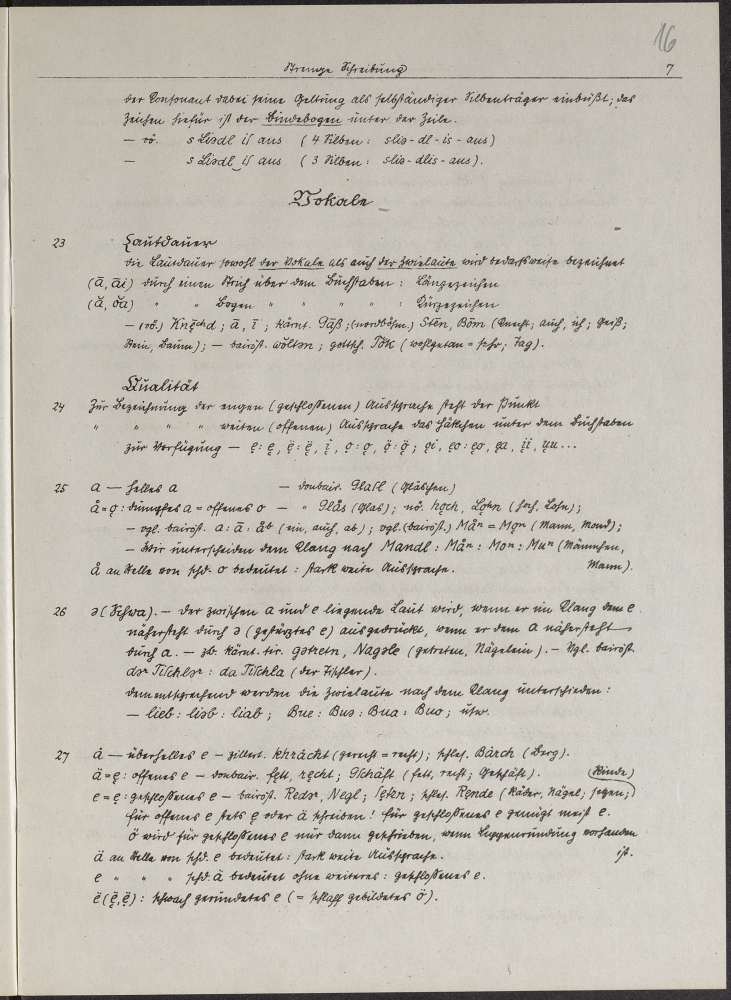 16
Strenge Schreibung 7
der Konsonant dabei seine Geltung als selbständiger Silbenträger einbüßt; das
Zeichen hiefür ist der Bindebogen unter der Zeile.
— rö. s Liədl is aus (4 Silben: sliə-dl-is-aus)
— s Liədl‿is aus (3 Silben: sliə-dlis-aus).
Vokale
23 Lautdauer
die Lautdauer sowohl der Vokale als auch der Zwielaute wird bedarfsweise bezeichnet
(ā, āi) durch einen Strich über dem Buchstaben: Längezeichen
(ă, ŏa) " " Bogen " " " " : Kürzezeichen
— (rö.) Knĕchd; ā, ī; kärnt. Gāß; (nordböhm.) Stēn, Bōm (Knecht; auch, ich; Geiß;
Stein, Baum); — bairöst. wōltən; gottsch. Tŏk (wohlgetan = sehr; Tag).
Qualität
24 Zur Bezeichnung der engen (geschlossenen) Aussprache steht der Punkt
" " " " weiten (offenen) Aussprache das Häkchen unter dem Buchstaben
zur Verfügung — ẹ: ę, ọ: ǫ,
25 a — helles a — donbair. Glasl (Gläschen)
å = ǫ: dumpfes a = offenes o — " Glås (Glas); nö. hǫch, Lǫhn (hoch, Lohn);
— vgl. bairöst. a: ā: åb (ein, auch, ab); vgl. (bairöst.) Måⁿ = Mǫⁿ (Mann, Mond);
— Wir unterscheiden dem Klang nach Mandl: Måⁿ: Moⁿ: Muⁿ (Männchen,
Mann).
å an Stelle von schd. o bedeutet: stark weite Aussprache.
26 ə (Schwa). — Der zwischen a und e liegende Laut wird, wenn er im Klang dem e
nähersteht durch ə (gestürztes e) ausgedrückt, wenn er dem a nähersteht
durch a. — zb. kärnt. tir. gətretn, Nagəle (getreten, Nägelein). — Vgl. bairöst.
dər Tischlər: da Tischla (der Tischler).
dementsprechend werden die Zwielaute nach dem Klang unterschieden:
— lieb: liəb: liab; Bue: Buə: Bua: Buo; usw.
27 ȧ — überhelles e — zillert. khrȧcht (gerecht = recht); schles. Bȧrch (Berg).
ä = ę: offenes e — donbair. fętt, ręcht; Gschäft (fett, recht; Geschäft).
e = ẹ: geschlossenes e — bairöst. Redər, Negl; schles. Rẹnde (Räder, Nägel; segen;
(Rinde)
für offenes e stets ę oder ä schreiben! für geschlossenes e genügt meist e.
ö wird für geschlossenes e nur dann geschrieben, wenn Lippenrundung vorhanden
ist.
ä an Stelle von schd. e bedeutet: stark weite Aussprache.
e " " " schd. ä bedeutet ohne weiteres: geschlossenes e.
schwach gerundetes e (= schlaff gebildetes ö).